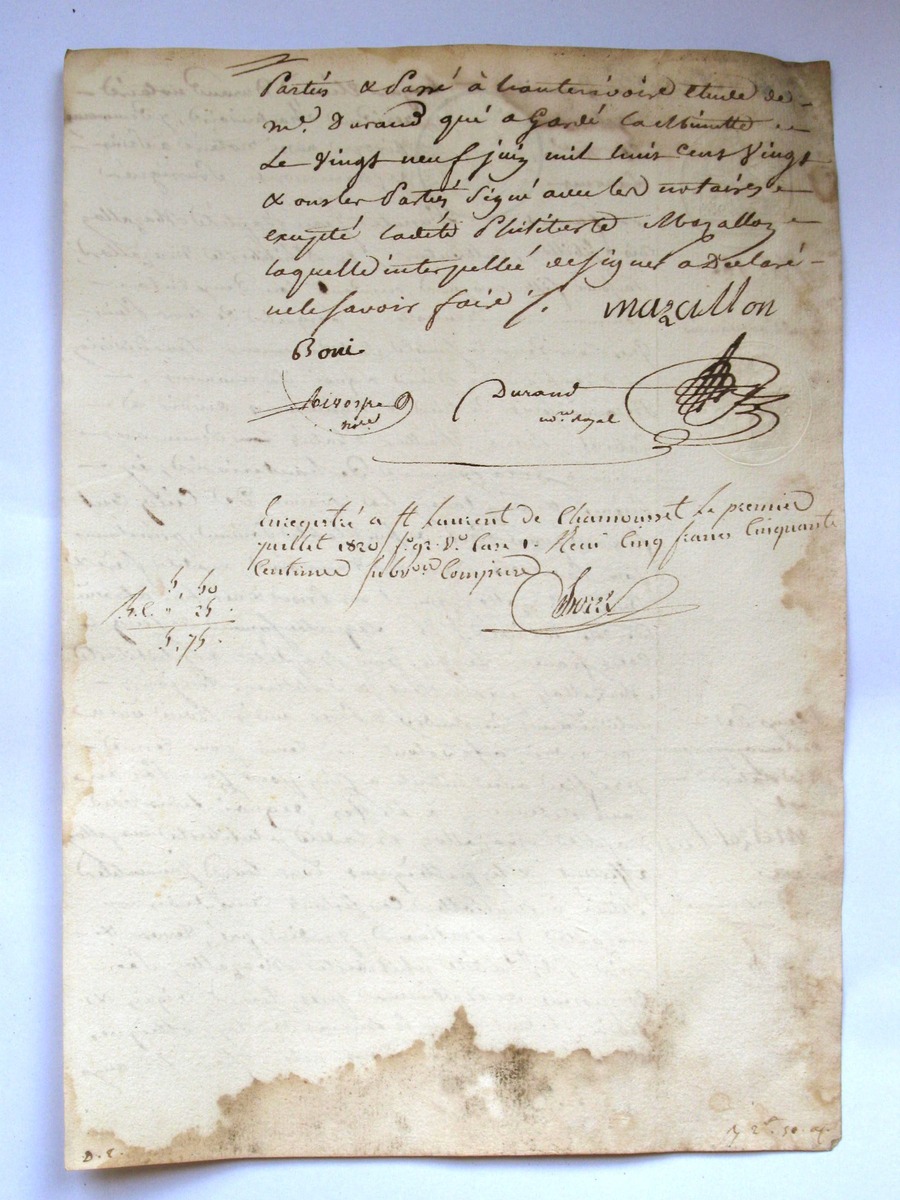 Parties & Passé à hauterivoire étude de
me. Durand qui a Gardé la Minutte
Le vingt neuf juin mil huit cens vingt
& ont les Parties signé avec les notaires
excepté cadete Philiberte Mazallon
laquelle interpellée de signer a Declaré
ne le savoir faire /.
mazallon
Boni
nre
Durand
nore royal
Enregistré a St Laurent de Chamousset le premier
juillet 1820 fo 92 Vo Case 1. Reçu Cinq francs Cinquante
Centimes subvon Comprise
5, 50
" 25.
5. 75
D. E.